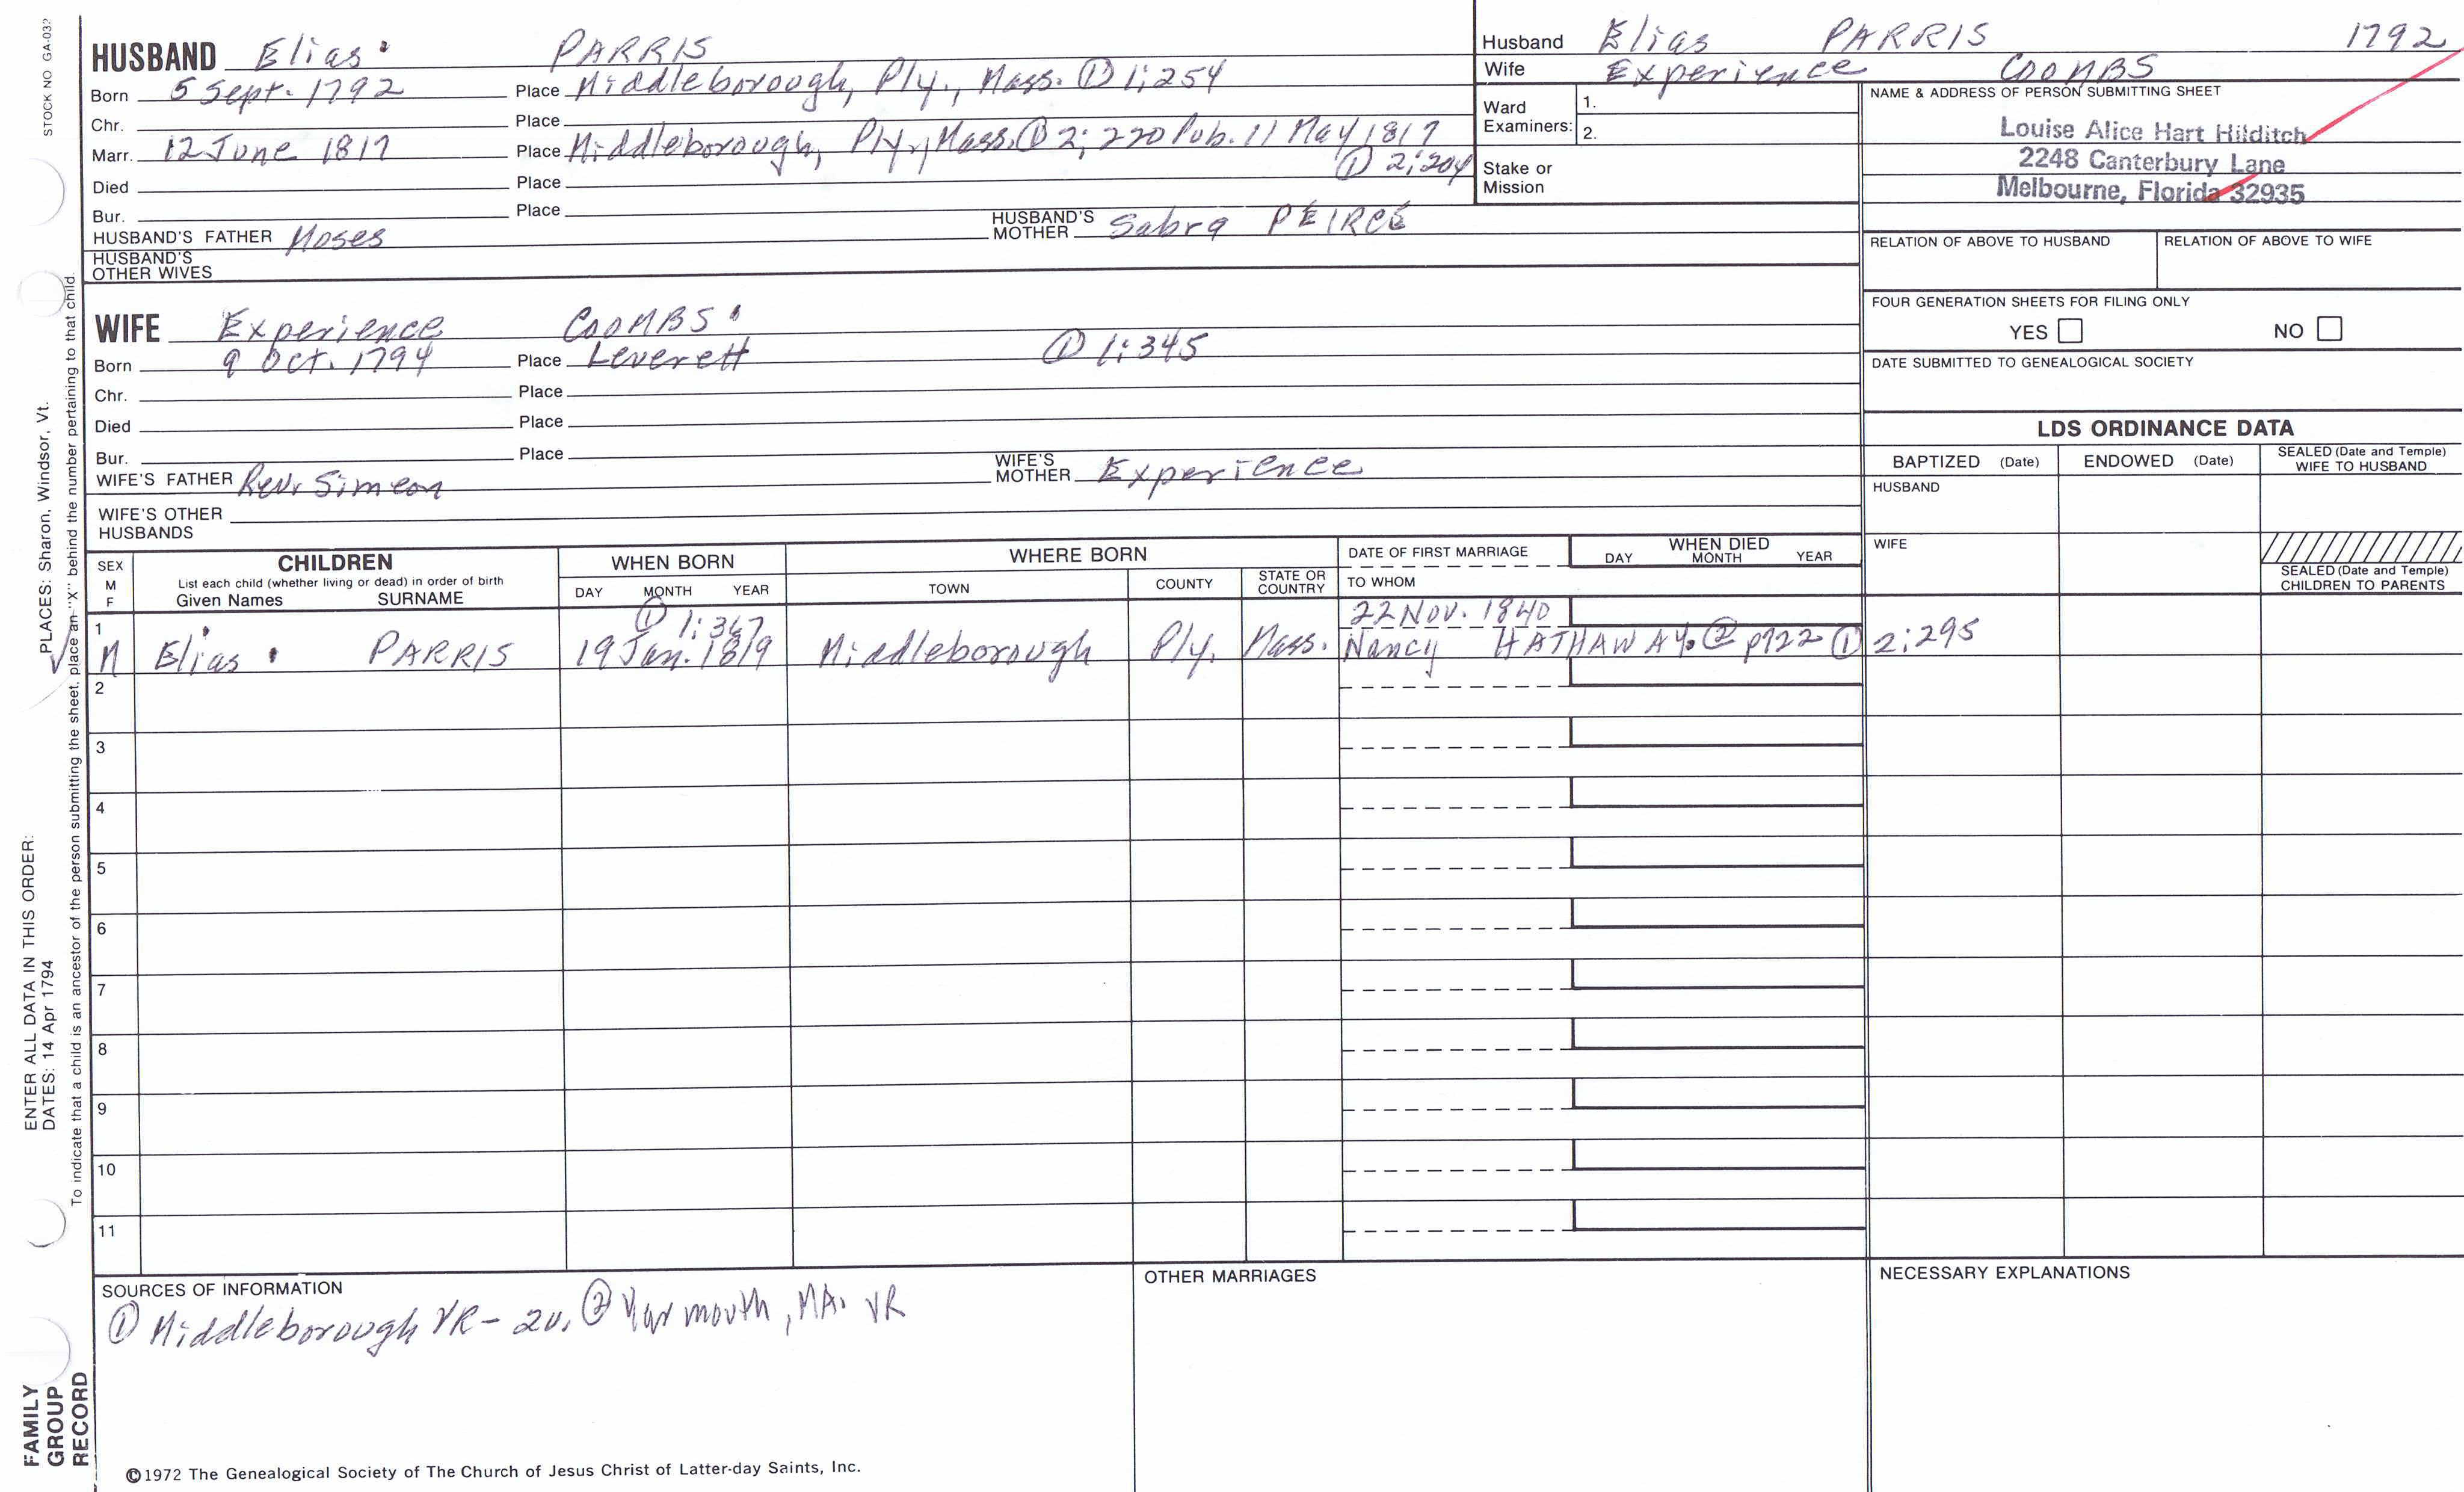 STOCK NO GA-032
HUSBAND Elias PARRIS
Born 5 Sept. 1792 Place Middleborough, Ply., Mass. ① 1:254
Chr. Place
Marr. 12 June 1817 Place Middleborough, Ply., Mass. ① 2:220 Pub. 11 May 1817
① 2:204
Died Place
Bur. Place
HUSBAND'S FATHER Moses HUSBAND'S MOTHER Sabra PEIRCE
HUSBAND'S OTHER WIVES
WIFE Experience COOMBS
Born 9 Oct. 1794 Place Leverett ① 1:345
Chr. Place
Died Place
Bur. Place
WIFE'S FATHER Rev. Simeon WIFE'S MOTHER Experience
WIFE'S OTHER HUSBANDS
Husband Elias PARRIS 1792
Wife Experience COOMBS
Ward Examiners: 1. 2.
Stake or Mission
NAME & ADDRESS OF PERSON SUBMITTING SHEET
Louise Alice Hart Hilditch
2248 Canterbury Lane
Melbourne, Florida 32935
RELATION OF ABOVE TO HUSBAND RELATION OF ABOVE TO WIFE
FOUR GENERATION SHEETS FOR FILING ONLY
YES NO
DATE SUBMITTED TO GENEALOGICAL SOCIETY
LDS ORDINANCE DATA
BAPTIZED (Date) ENDOWED (Date) SEALED (Date and Temple) WIFE TO HUSBAND
HUSBAND
WIFE
SEALED (Date and Temple) CHILDREN TO PARENTS
SEX M F
CHILDREN
List each child (whether living or dead) in order of birth
Given Names SURNAME
WHEN BORN
DAY MONTH YEAR
WHERE BORN
TOWN COUNTY STATE OR COUNTRY
DATE OF FIRST MARRIAGE
TO WHOM
WHEN DIED
DAY MONTH YEAR
① 1:367 22 Nov. 1840
1 M Elias PARRIS 19 Jan. 1819 Middleborough Ply. Mass. Nancy HATHAWAY. ② p122 ① 2:295
2
3
4
5
6
7
8
9
10
11
SOURCES OF INFORMATION
① Middleborough VR - 2v. ② Yarmouth, MA. VR
OTHER MARRIAGES
NECESSARY EXPLANATIONS
©1972 The Genealogical Society of The Church of Jesus Christ of Latter-day Saints, Inc.
FAMILY GROUP RECORD
ENTER ALL DATA IN THIS ORDER:
DATES: 14 Apr 1794
PLACES: Sharon, Windsor, Vt.
To indicate that a child is an ancestor of the person submitting the sheet, place an "X" behind the number pertaining to that child.